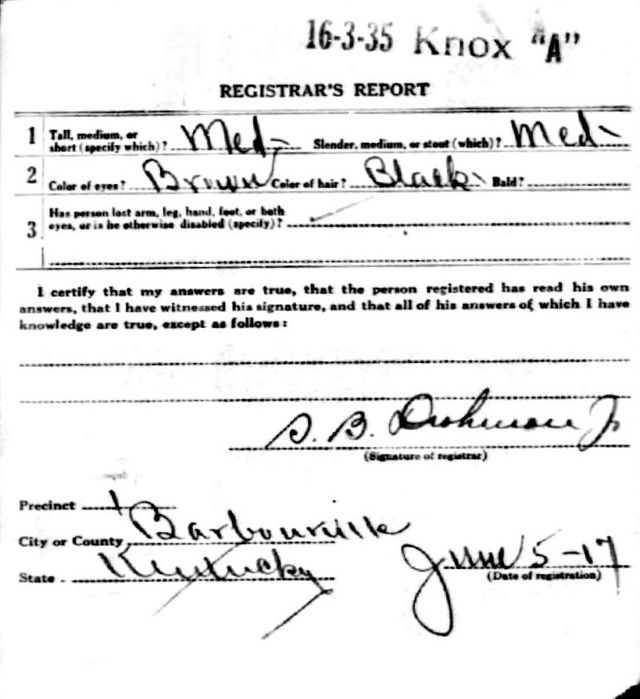 16-3-35 Knox "A"
REGISTRAR'S REPORT
1 Tall, medium, or short (specify which)? Med- Slender, medium, or stout (which)? Med-
2 Color of eyes? Brown Color of hair? Black Bald?
3 Has person lost arm, leg, hand, foot, or both eyes, or is he otherwise disabled (specify)?
I certify that my answers are true, that the person registered has read his own
answers, that I have witnessed his signature, and that all of his answers of which I have
knowledge are true, except as follows:
B. Jr
(Signature of registrar)
Precinct
City or County Barbourville
State Kentucky June 5-17
(Date of registration)